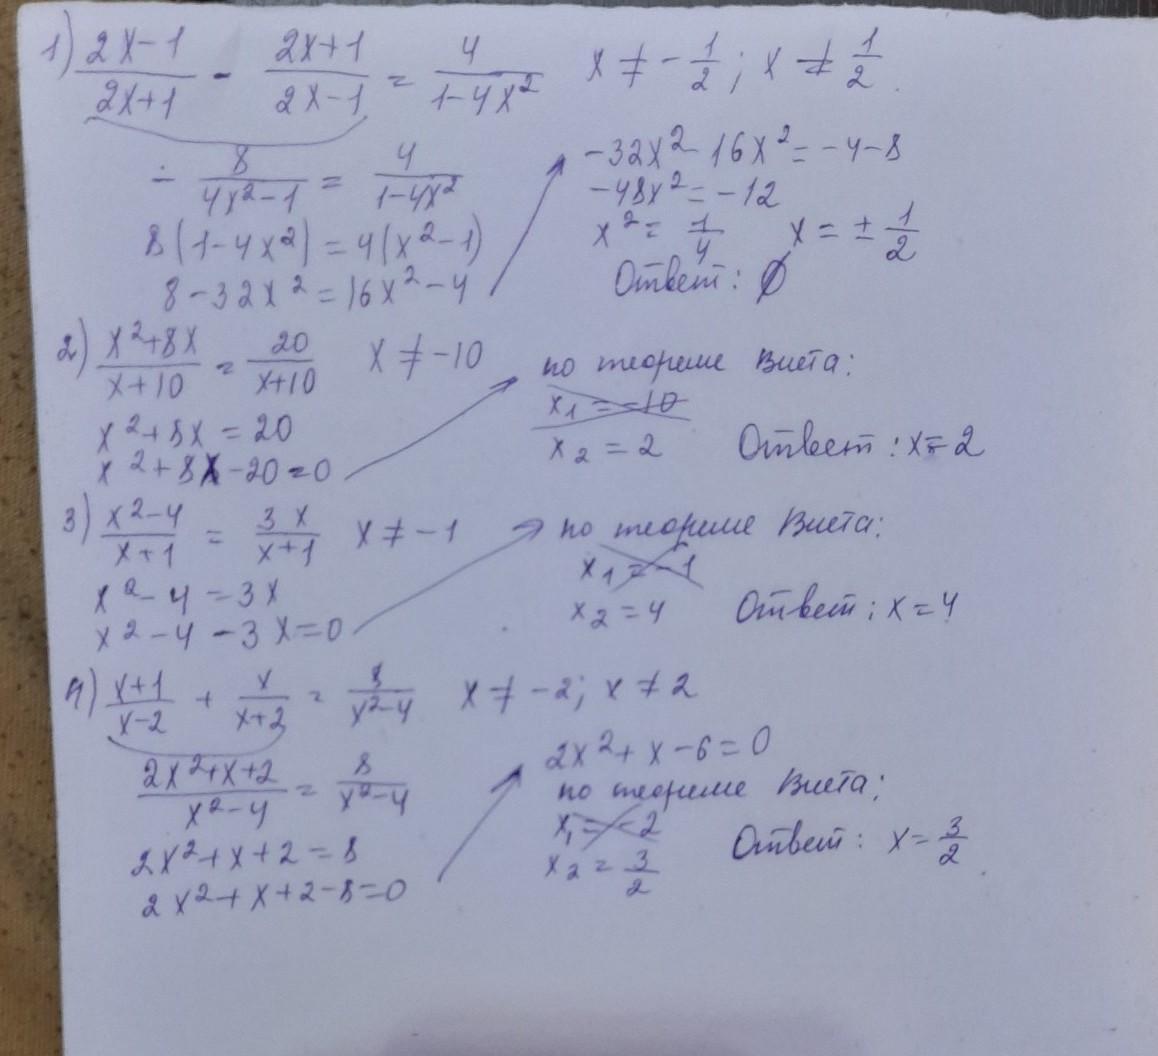 1) (2x-1)/(2x+1) - (2x+1)/(2x-1) = 4/(1-4x²) x ≠ -1/2; x ≠ 1/2
- 8/(4x²-1) = 4/(1-4x²)
8(1-4x²) = 4(x²-1)
8-32x² = 16x²-4
-32x²-16x² = -4-8
-48x² = -12
x² = 1/4 x = ±1/2
Ответ: ∅
2) (x²+8x)/(x+10) = 20/(x+10) x ≠ -10
x²+8x = 20
x²+8x-20=0
по теореме Виета:
x₁ = -10
x₂ = 2 Ответ: x=2
3) (x²-4)/(x+1) = 3x/(x+1) x ≠ -1
x²-4 = 3x
x²-4-3x=0
по теореме Виета:
x₁ = -1
x₂ = 4 Ответ: x=4
4) (x+1)/(x-2) + x/(x+2) = 8/(x²-4) x ≠ -2; x ≠ 2
(2x²+x+2)/(x²-4) = 8/(x²-4)
2x²+x+2 = 8
2x²+x+2-8=0
2x²+x-6=0
по теореме Виета:
x₁ = -2
x₂ = 3/2 Ответ: x=3/2